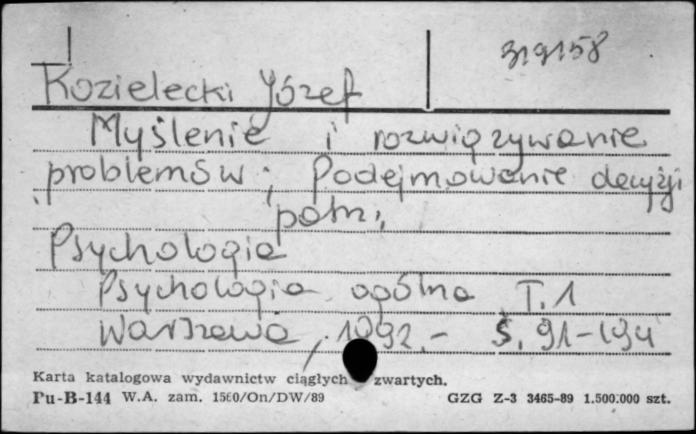 319158
Kozielecki Józef
Myślenie i rozwiązywanie
problemów; Podejmowanie decyzji
patrz,
Psychologia
Psychologia ogólna T. 1
Warszawa, 1992.- S. 91-194
Karta katalogowa wydawnictw ciągłych zwartych.
Pu-B-144 W.A. zam. 1560/On/DW/89 GZG Z-3 3465-89 1.500.000 szt.